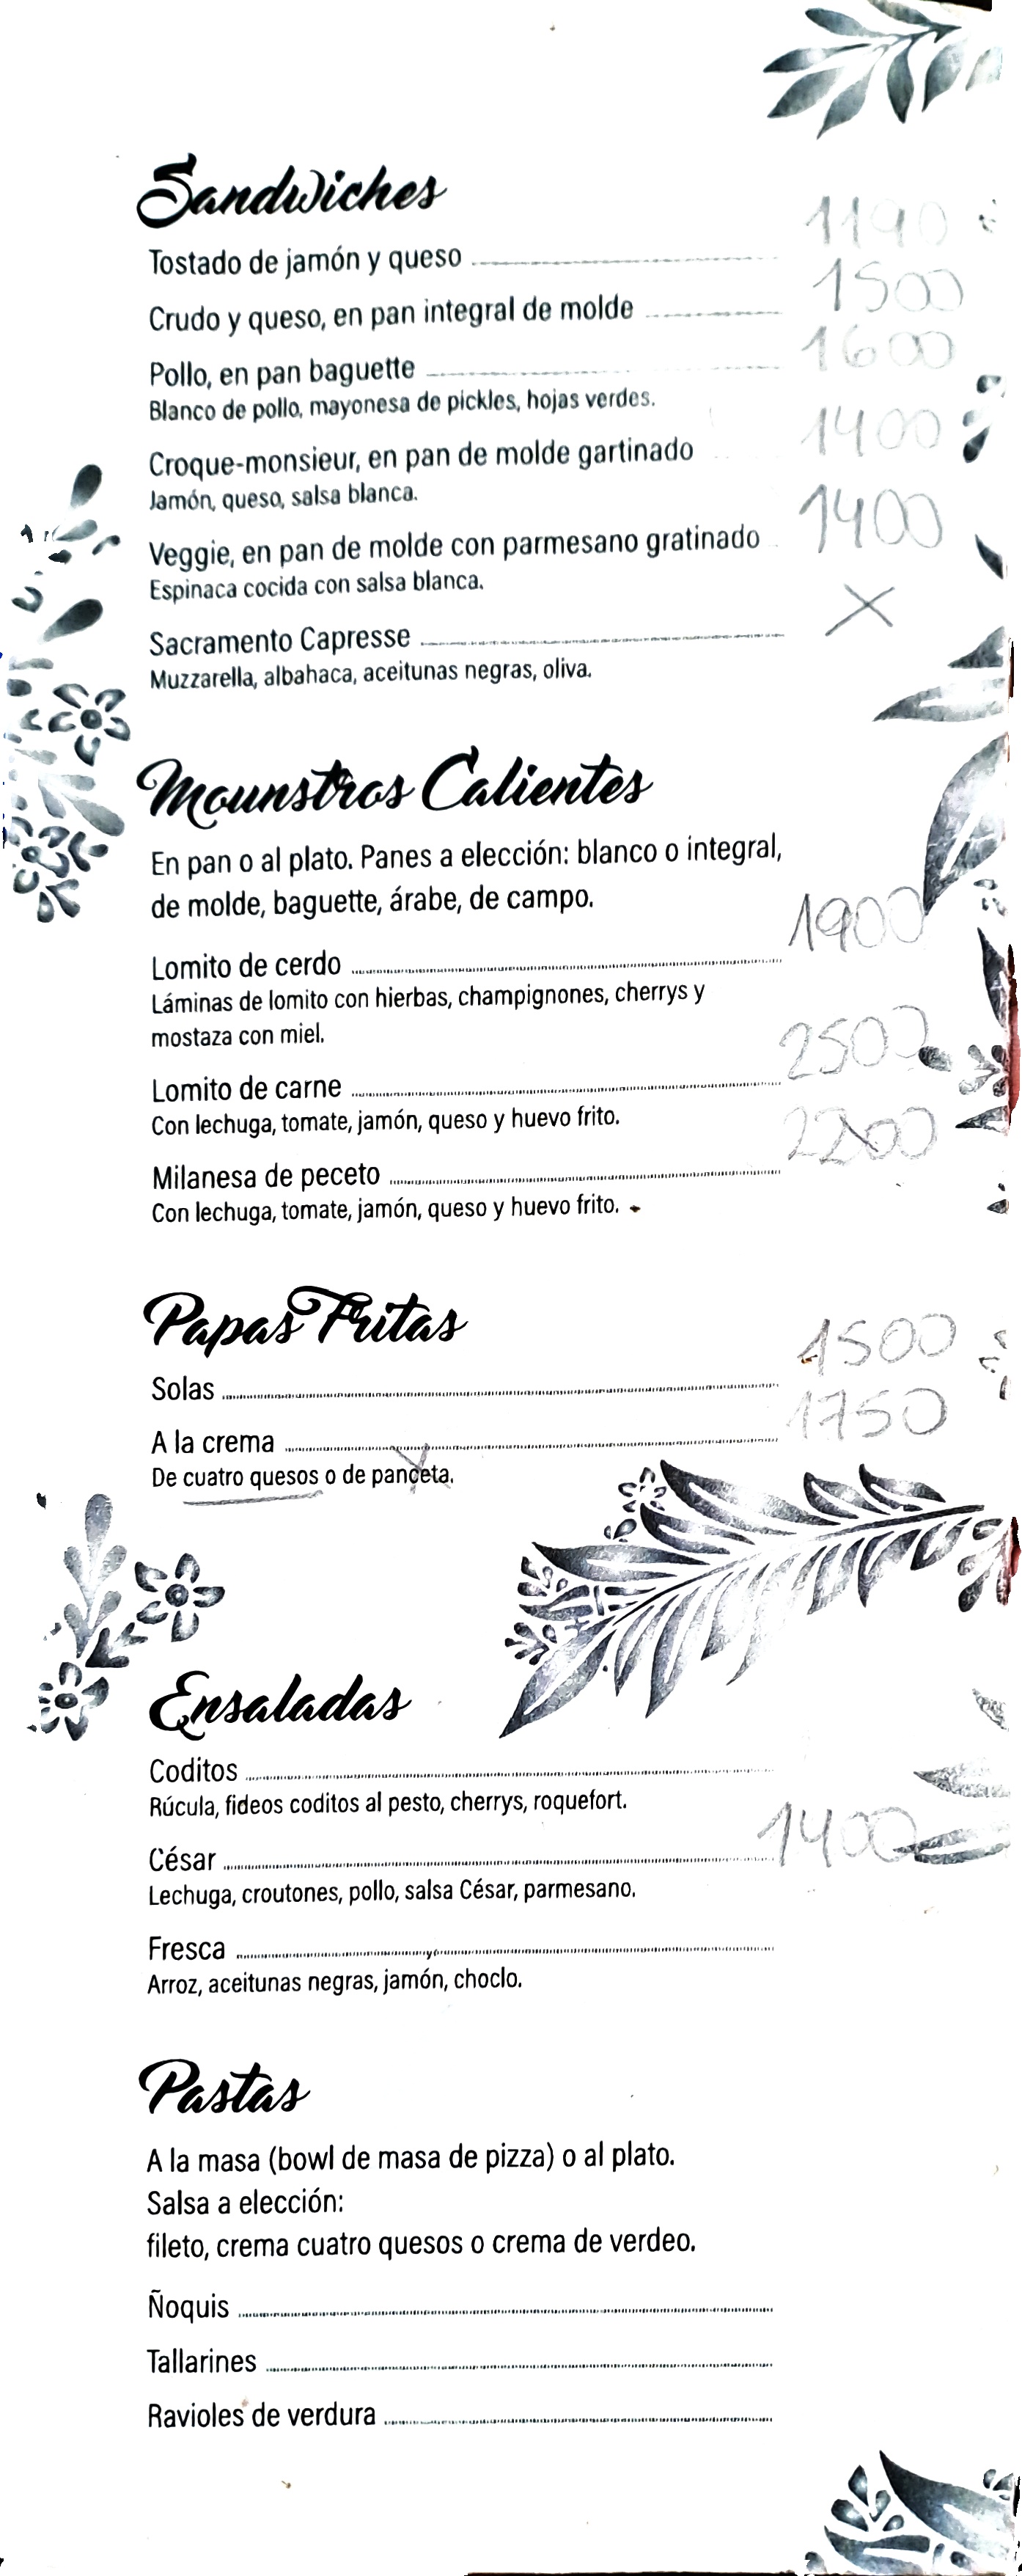 Sandwiches
Tostado de jamón y queso 1190
Crudo y queso, en pan integral de molde 1500
Pollo, en pan baguette 1600
Blanco de pollo, mayonesa de pickles, hojas verdes.
Croque-monsieur, en pan de molde gartinado 1400
Jamón, queso, salsa blanca.
Veggie, en pan de molde con parmesano gratinado 1400
Espinaca cocida con salsa blanca.
Sacramento Capresse X
Muzzarella, albahaca, aceitunas negras, oliva.
Mounstros Calientes
En pan o al plato. Panes a elección: blanco o integral,
de molde, baguette, árabe, de campo.
Lomito de cerdo 1900
Láminas de lomito con hierbas, champignones, cherrys y
mostaza con miel.
Lomito de carne 2500
Con lechuga, tomate, jamón, queso y huevo frito.
Milanesa de peceto 2200
Con lechuga, tomate, jamón, queso y huevo frito.
Papas Fritas
Solas 1500
A la crema 1750
De cuatro quesos o de panceta.
Ensaladas
Coditos
Rúcula, fideos coditos al pesto, cherrys, roquefort.
César 1400
Lechuga, croutones, pollo, salsa César, parmesano.
Fresca
Arroz, aceitunas negras, jamón, choclo.
Pastas
A la masa (bowl de masa de pizza) o al plato.
Salsa a elección:
fileto, crema cuatro quesos o crema de verdeo.
Ñoquis
Tallarines
Ravioles de verdura